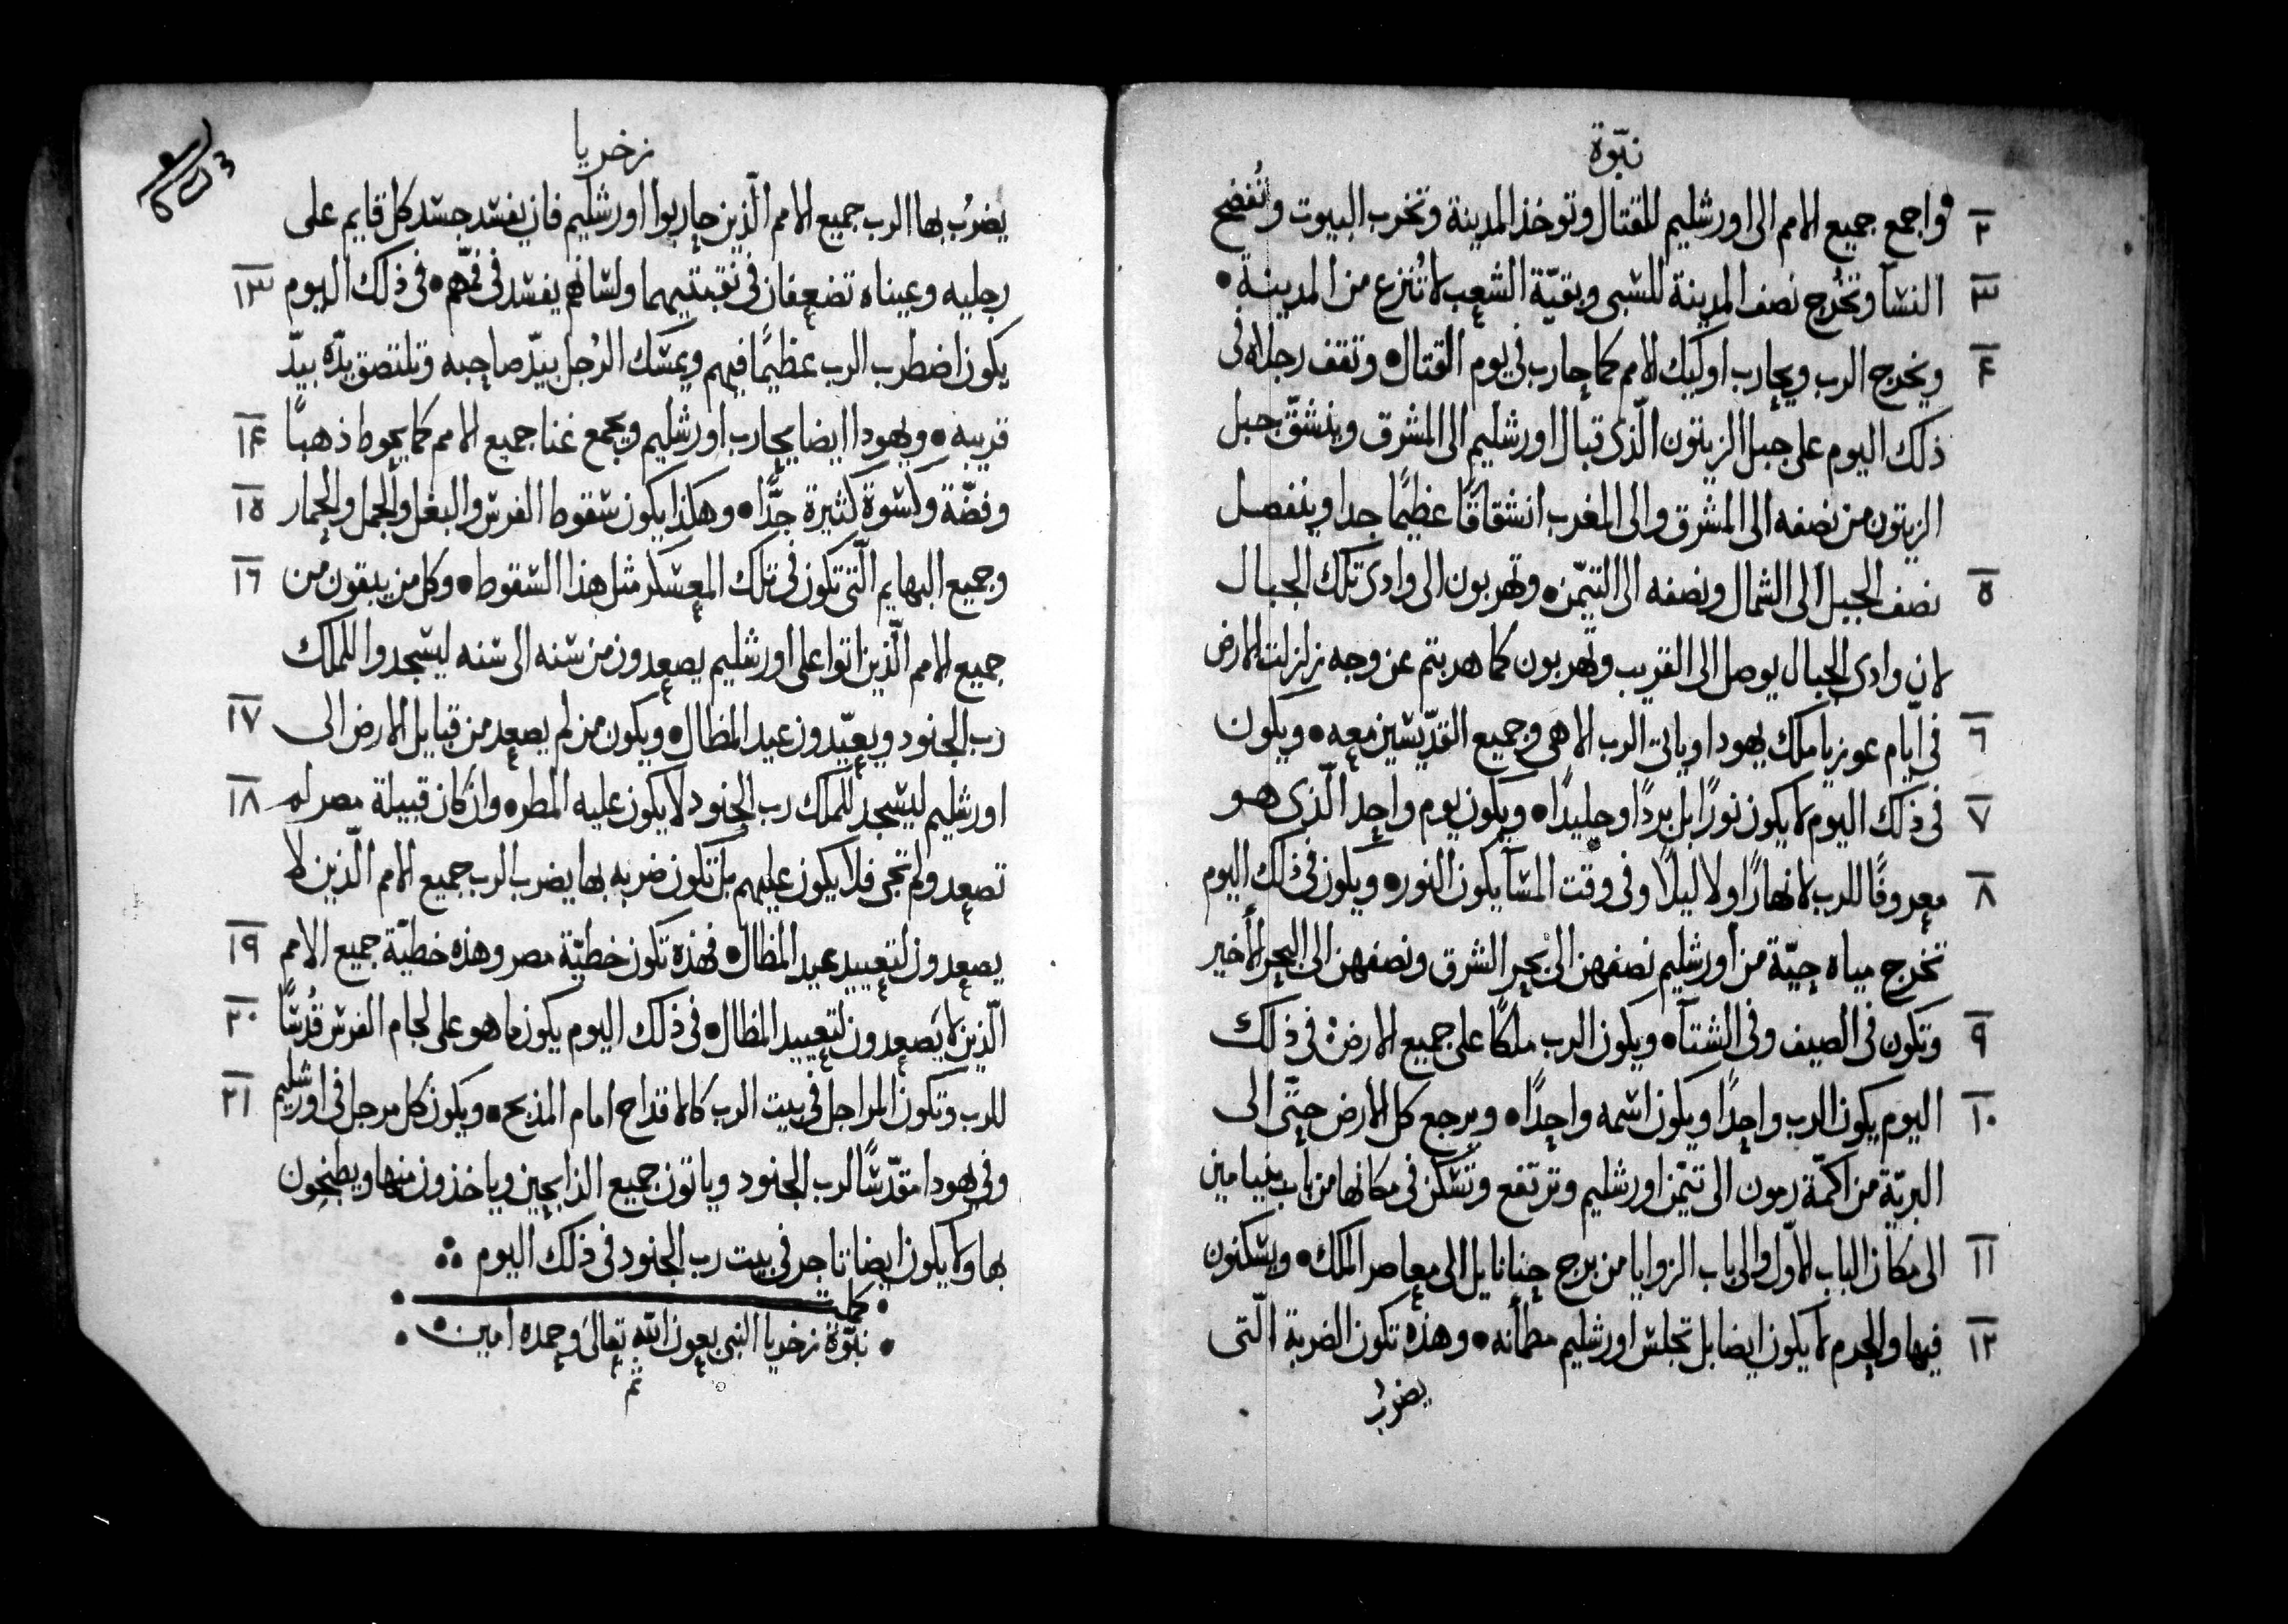 نبّوة
٢ واجمع جميع الامم الى اورشليم للقتال وتوخذ المدينة وتخرب البيوت وتُفضح
٣ النسآ وتخرُج نصف المدينة للسبى وبقيّة الشعب لا تُنزع من المدينة •
٤ ويخرج الرب ويحارب اوليك الامم كما حارب فى يوم القتال • وتقف رجلاه فى
ذلك اليوم على جبل الزيتون الّذى قبال اورشليم الى المشرق وينشقّ جبل
الزيتون من نصفه الى المشرق والى المغرب انشقاقًا عظيمًا جدا وينفصل
٥ نصف الجبل الى الشمال ونصفه الى التيمّن • وتهربون الى وادى تلك الجبال
لان وادى الجبال يوصل الى القريب وتهربون كما هربتم عن وجه زلزلت الارض
٦ فى ايّام عوزيا ملك يهودا وياتى الرب الاهى وجميع القدّيسين معه • ويكون
٧ فى ذلك اليوم لا يكون نورًا بل بردًا وجليدًا • ويكون يوم واحد الّذى هو
٨ معروفًا للرب لا نهارًا ولا ليلًا وفى وقت المسآ يكون النور • ويكون فى ذلك اليوم
تخرج مياه حيّة من اورشليم نصفهن الى بحر الشرق ونصفهن الى البحر الأخير
٩ وتكون فى الصيف وفى الشتآ • ويكون الرب ملكًا على جميع الارض فى ذلك
١٠ اليوم يكون الرب واحدًا ويكون اسمه واحدًا • ويرجع كل الارض حتّى الى
البريّة من اكمّة رمون الى تيمّن اورشليم وترتفع وتسكن فى مكانها من باب بنيامين
١١ الى مكان الباب الاوّل والى باب الزوايا من برج حنانايل الى معاصر الملك • ويسكنون
١٢ فيها والحرم لا يكون ايضا بل تجلس اورشليم مطمأنه • وهذه تكون الضربة الّتى
يضربُ
زخريا
يضربُ بها الرب جميع الامم الّذين حاربوا اورشليم فان يفسد جسد كل قايم على
رجليه وعيناه تضعفان فى نقبتيهما ولسانهم يفسد فى فمّهم • فى ذلك اليوم ١٣
يكون اضطرب الرب عظيمًا فيهم ويمسك الرُجل بيدّ صاحبه وتلتصق يدّه بيدّ
قريبه • ويهودا ايضا يحارب اورشليم ويجمع غنا جميع الامم كما يحوط ذهبًا ١٤
وفضّة وكسوة كثيرة جدًّا • وهكذا يكون سقوط الفرس والبغل والجمل والحمار ١٥
وجميع البهايم الّتى تكون فى تلك المعسكر مثل هذا السقوط • وكل من يبقون من ١٦
جميع الامم الّذين اتوا على اورشليم يصعدون من سنه الى سنه ليسجدوا للملك
رب الجنود ويعيّدون عيد المظال • ويكون من لم يصعد من قبايل الارض الى ١٧
اورشليم ليسجد للملك رب الجنود لا يكون عليه المطر • وان كان قبيلة مصر لم ١٨
تصعد ولم تجى فلا يكون عليهم بل تكون ضربه بها يضرب الرب جميع الامم الّذين لا
يصعدون لتعييد عيد المظال • فهذه تكون خطيّة مصر وهذه خطيّة جميع الامم ١٩
الّذين لا يَصعدون لتعييد المظال • فى ذلك اليوم يكون ما هو على لجام الفرس قُدسًا ٢٠
للرب وتكون المراجل فى بيت الرب كالاقداح امام المذبح • ويكون كل مرجل فى اورشليم ٢١
وفى يهودا مقدّسًا لرب الجنود وياتون جميع الذابحين وياخذون منها ويطبخون
بها ولا يكون ايضا تاجر فى بيت رب الجنود فى ذلك اليوم ∴
• كملت •
• نبّوة زخريا النبى بعون الله تعالى وحمده امين •
تم